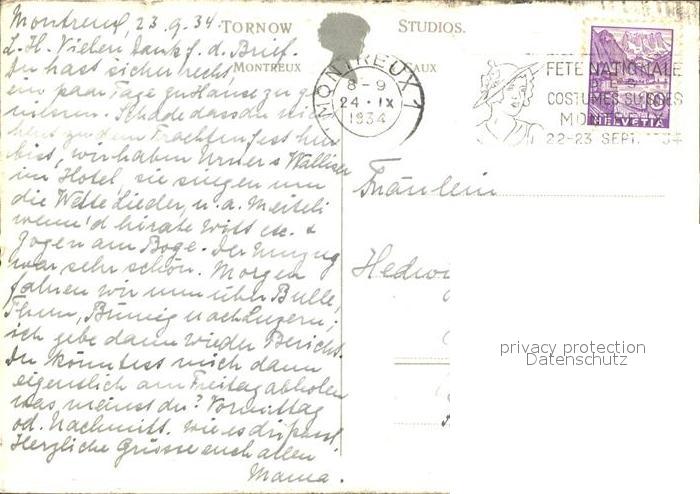 Montreux 23.9.34.
TORNOW STUDIOS.
MONTREUX VAUX
L. H. Vielen Dank f. d. Brief.
Du hast sicher recht
ein paar Tage zu Hause zu ge
niessen. Schade dass du nicht
hier zu dem Trachtenfest hier
bist, wir haben Urner & Walliser
im Hotel, sie singen um
die Wette Lieder, u. a. Meiteli
wenn'd hirate witt etc. &
Zogen am Boge. Der Umzug
war sehr schön. Morgen
fahren wir nun über Bulle,
Thun, Brünig nach Luzern;
ich gebe dann wieder Bericht.
Du könntest mich dann
eigentlich am Freitag abholen
was meinst du? Vormittag
od. Nachmitt. wie es dir passt.
Herzliche Grüsse euch allen
Mama.
MONTREUX 1
8-9
24.IX
1934
FETE NATIONALE
DES
COSTUMES SUISSES
MONTREUX
22-23 SEPT. 1934
10
HELVETIA
Fräulein
Hedw
privacy protection
Datenschutz